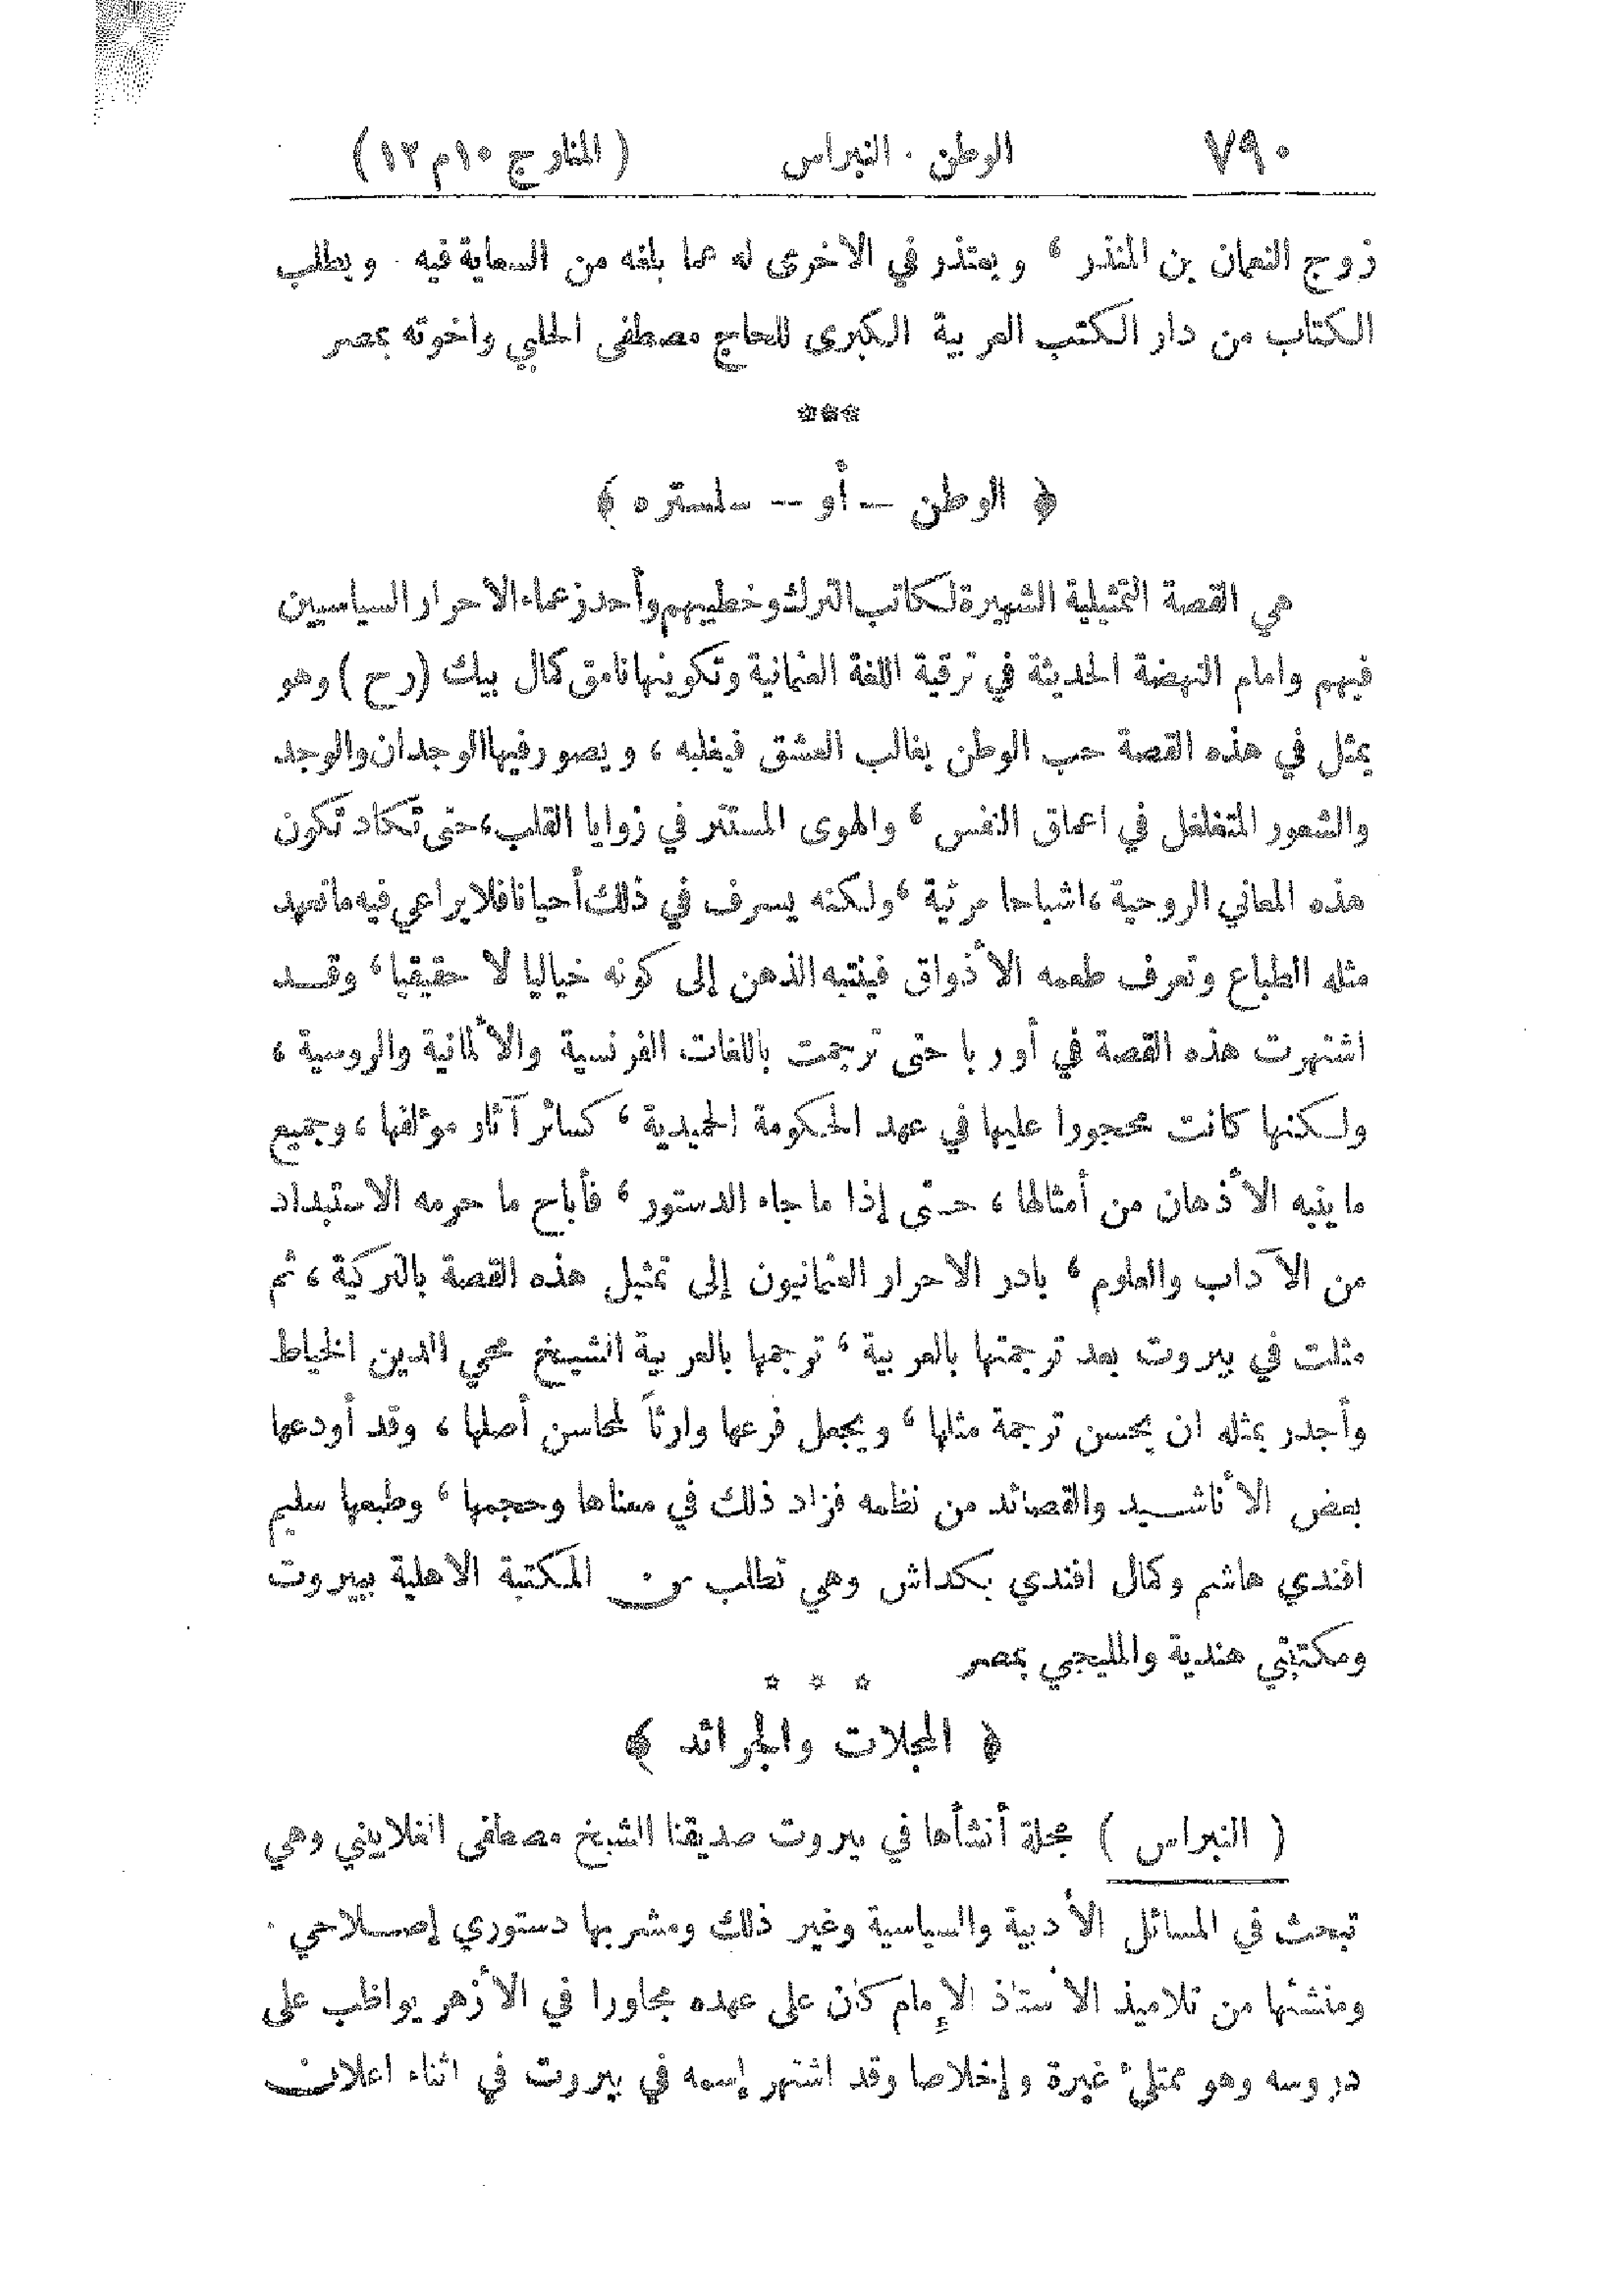 ٧٩٠ الوطن . النبراس ( المنار ج ١٠ م ١٢ )
زوج النعمان بن المنذر ، ويعتذر في الاخرى له عما بلغه من السعاية فيه . ويطلب
الكتاب من دار الكتب العربية الكبرى للحاج مصطفى الحلبي واخوته بمصر
***
﴿ الوطن — أو — سلستره ﴾
هي القصة التمثيلية الشهيرة لكاتب الترك وخطيبهم وأحد زعماء الاحرار السياسيين
فيهم وامام النهضة الحديثة في ترقية اللغة العثمانية وتكوينها نامق كمال بيك (رح) وهو
يمثل في هذه القصة حب الوطن يغالب العشق فيغلبه ، ويصور فيها الوجدان والوجد
والشعور المتغلغل في اعماق النفس ، والهوى المستتر في زوايا القلب ، حتى تكاد تكون
هذه المعاني الروحية ، اشباحا مرئية ، ولكنه يسرف في ذلك أحيانا فلا يراعي فيه ما تعهد
مثله الطباع وتعرف طعمه الأذواق فينتبه الذهن إلى كونه خياليا لا حقيقيا ، وقد
اشتهرت هذه القصة في أوربا حتى ترجمت باللغات الفرنسية والألمانية والروسية ،
ولكنها كانت محجورا عليها في عهد الحكومة الحميدية ، كسائر آثار مؤلفها ، وجميع
ما ينبه الأذهان من أمثالها ، حتى إذا ما جاء الدستور ، فأباح ما حرمه الاستبداد
من الآداب والعلوم ، بادر الاحرار العثمانيون إلى تمثيل هذه القصة بالتركية ، ثم
مثلت في بيروت بعد ترجمتها بالعربية ، ترجمها بالعربية الشيخ محي الدين الخياط
وأجدر بمثله ان يحسن ترجمة مثلها ، ويجعل فرعها وارثاً لمحاسن أصلها ، وقد أودعها
بعض الأناشيد والقصائد من نظمه فزاد ذلك في معناها وحجمها ، وطبعها سليم
افندي هاشم وكمال افندي بكداش وهي تطلب من المكتبة الاهلية ببيروت
ومكتبتي هندية والمليجي بمصر
* * *
﴿ المجلات والجرائد ﴾
( النبراس ) مجلة أنشأها في بيروت صديقنا الشيخ مصطفى الغلاييني وهي
تبحث في المسائل الأدبية والسياسية وغير ذلك ومشربها دستوري إصلاحي .
ومنشئها من تلاميذ الأستاذ الإمام كان على عهده مجاورا في الأزهر يواظب على
دروسه وهو ممتلئ غيرة وإخلاصا وقد اشتهر إسمه في بيروت في اثناء اعلان